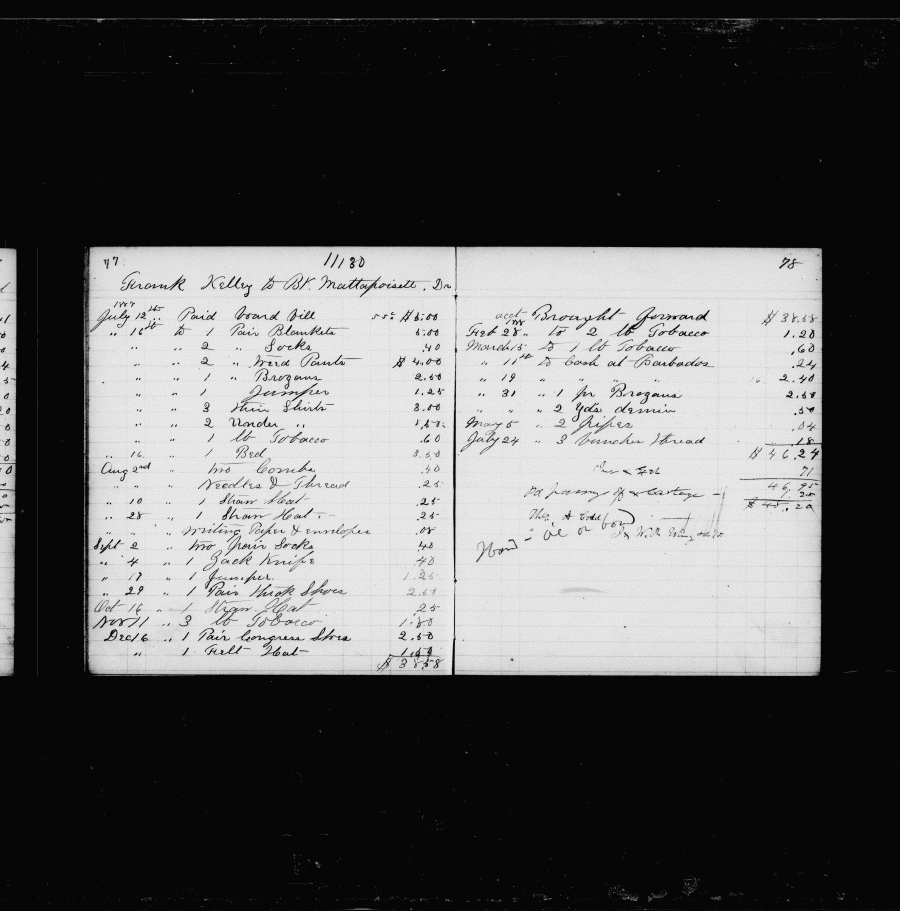 77
11130
Frank Kelley to Bk. Mattapoisett. Dr
1887
July 12th " Paid board bill $5.00
" 16th to 1 Pair Blankets 5.00
" " 2 " Socks .40
" " 2 " Pants $4.00
" " 1 " Brogans 2.50
" " 1 Jumper 1.25
" " 3 Shirts 3.00
" " 2 Under " 1.50
" " 1 lb Tobacco .60
" 16 " 1 Bed 3.50
Aug 2nd " two Combs .40
" " " Needles & Thread .25
" 10 " 1 Straw Hat .25
" 28 " 1 Straw Hat .25
" " " writing Paper & envelopes .08
Sept 2 " two pair Socks 40
" 4 " 1 Jack Knife 40
" 17 " 1 Jumper 1.25
" 29 " 1 Pair thick Shoes 2.50
Oct 16 " 1 Straw Hat 25
Nov 11 " 3 lb Tobacco 1.80
Dec 16 " 1 Pair Congress Shoes 2.50
" 1 Felt Hat 1.50
$38.58
78
acct Brought forward $38.58
1888
Feb 28 " to 2 lb Tobacco 1.20
March 15 to 1 lb Tobacco .60
" 11th to Cash at Barbados .24
" 19 " " " " 2.40
" 31 " 1 pr Brogans 2.50
" " " 2 Yds demin .50
May 5 " 2 pipes .04
July 24 " 3 bunches thread 18
$46.24
71
46.95